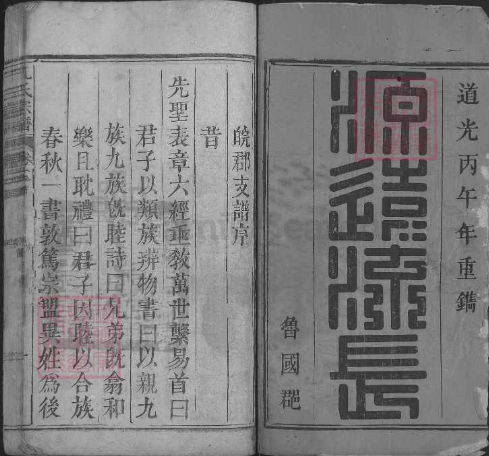 道光丙午年重鐫
源遠流長
魯國郡
皖郡支譜序
昔
先聖表章六經垂教萬世繫易首曰
君子以類族辨物書曰以親九
族九族既睦詩曰兄弟既翕和
樂且耽禮曰君子因睦以合族
春秋一書敦篤宗盟異姓為後